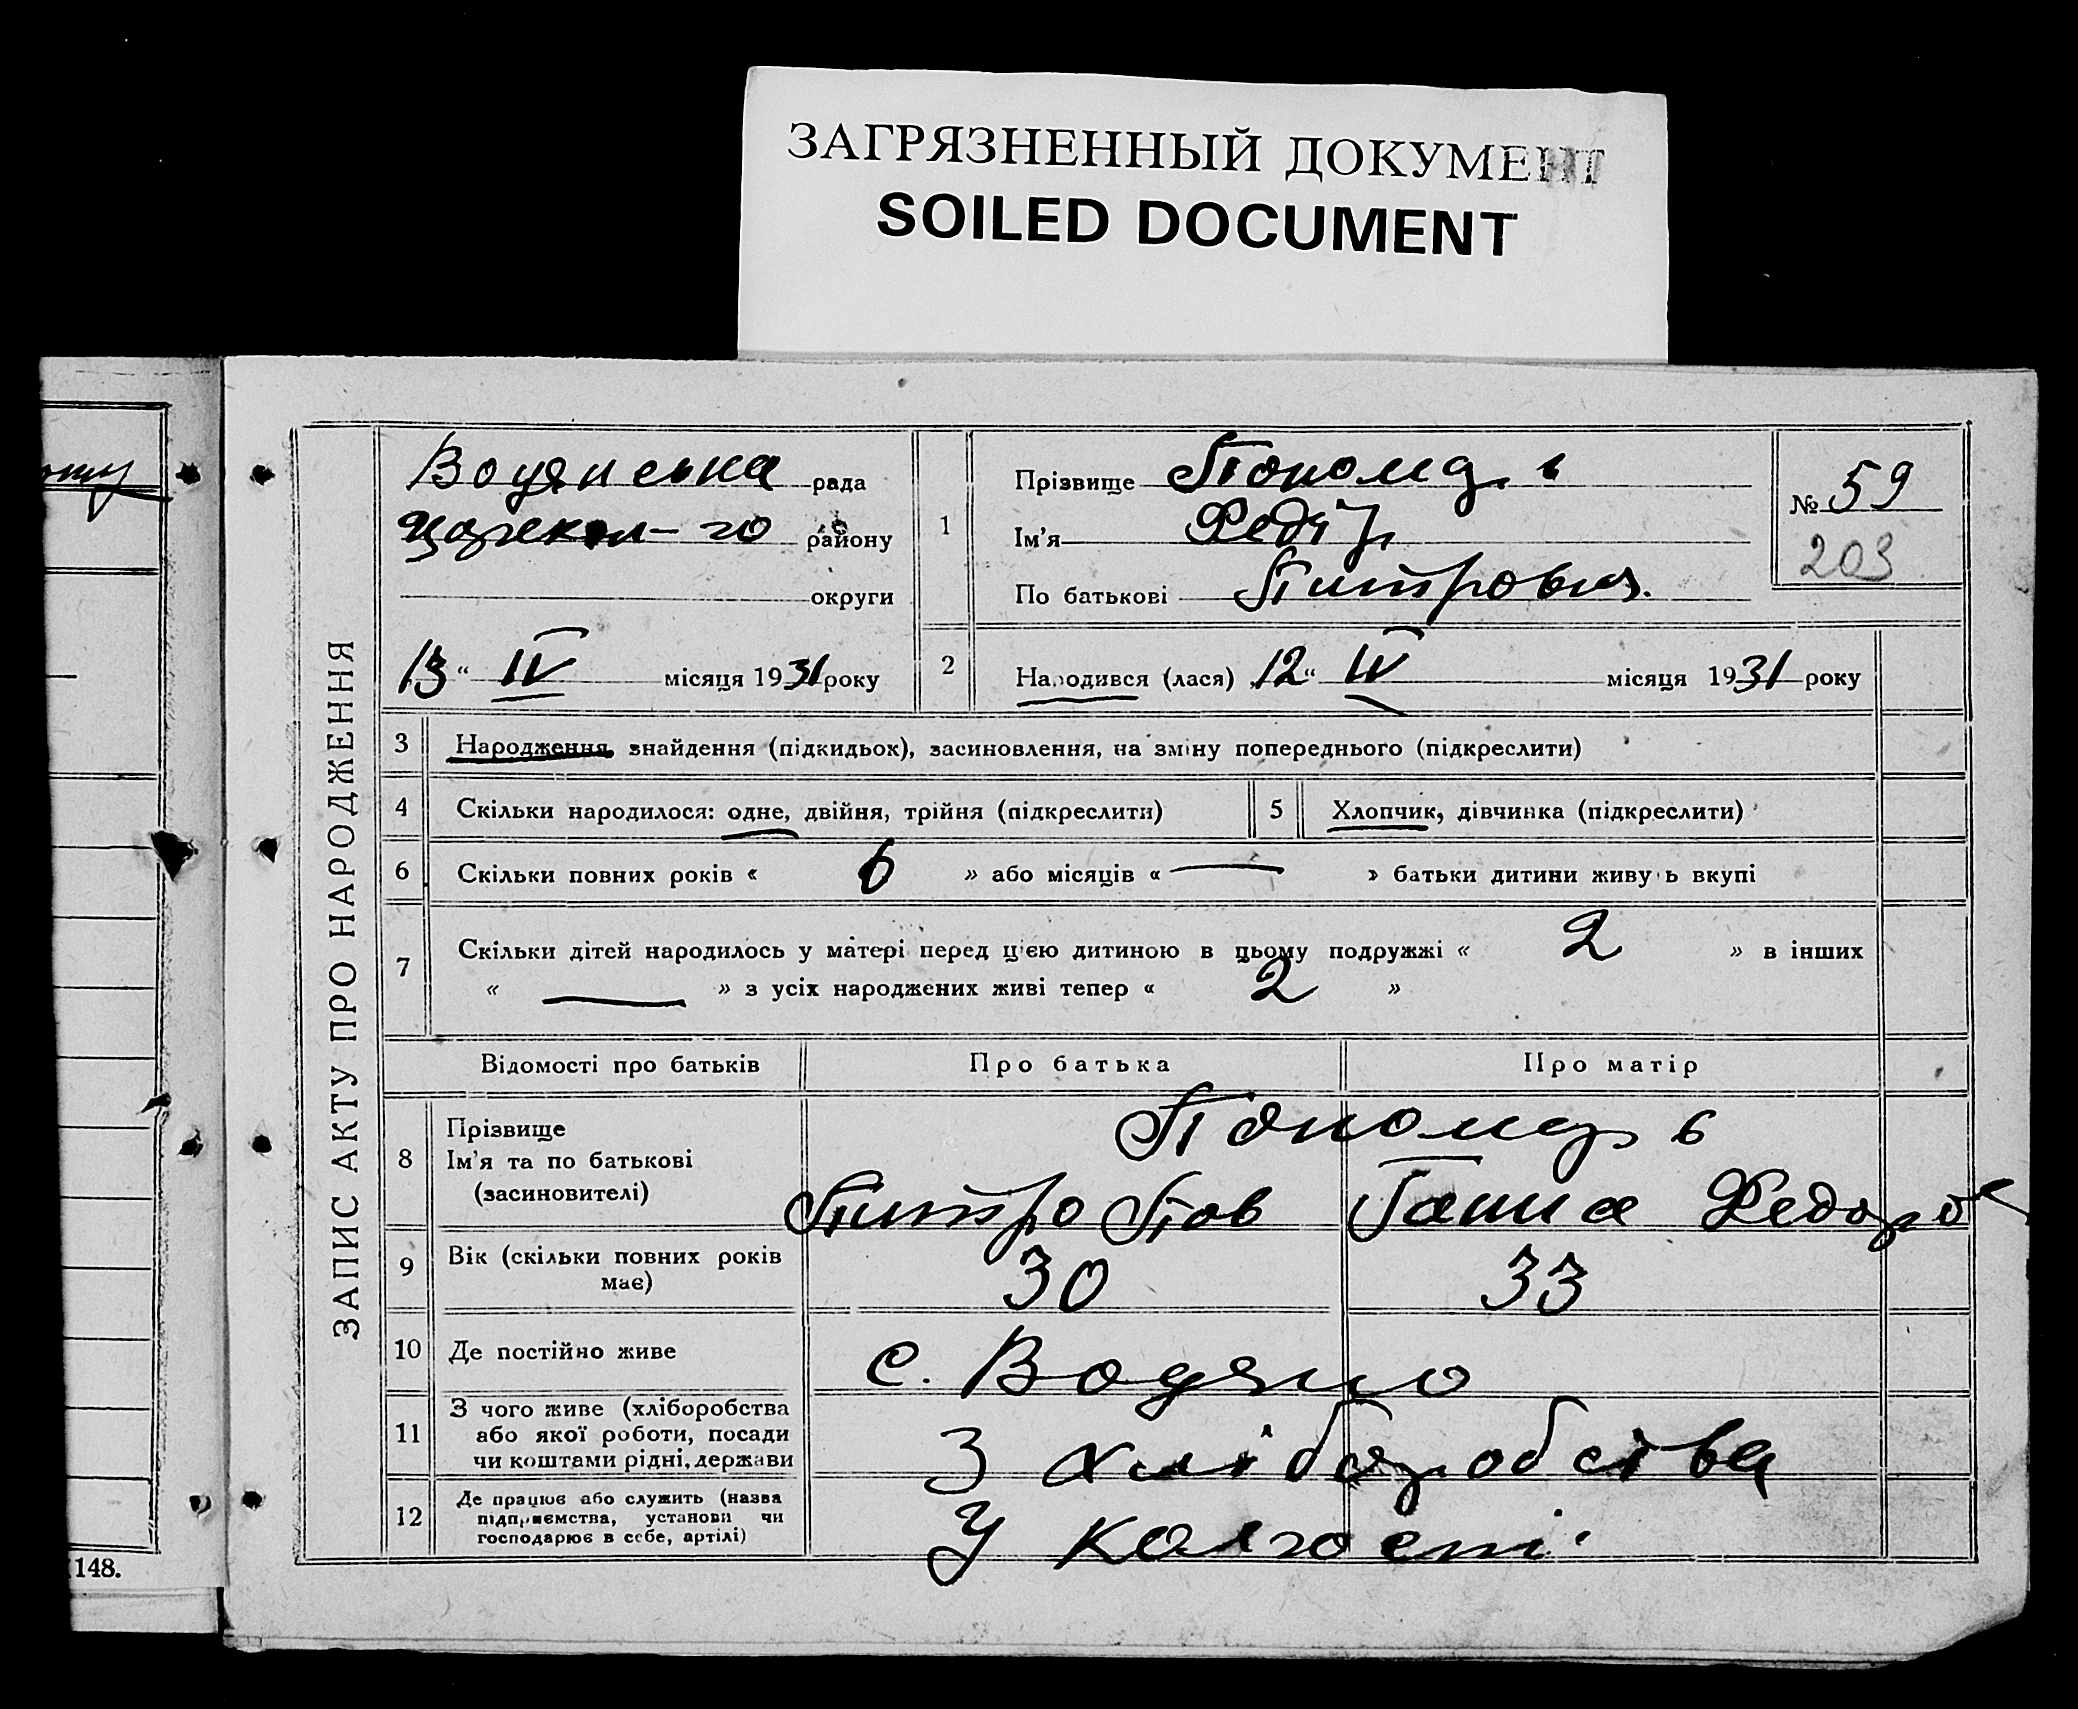 ЗАГРЯЗНЕННЫЙ ДОКУМЕНТ
SOILED DOCUMENT
ЗАПИС АКТУ ПРО НАРОДЖЕННЯ
Водянська рада
району
округи
13 “ IV місяця 1931 року
1
Прізвище Пономар
Ім'я Федір
По батькові Питрович.
№ 59
203
2 Народився (лася) 12 “ IV місяця 1931 року
3 Народження, знайдення (підкидьок), засиновлення, на зміну попереднього (підкреслити)
4 Скільки народилося: одне, двійня, трійня (підкреслити) 5 Хлопчик, дівчинка (підкреслити)
6 Скільки повних років « 6 » або місяців « — » батьки дитини живуть вкупі
7 Скільки дітей народилось у матері перед цією дитиною в цьому подружжі « 2 » в інших
« — » з усіх народжених живі тепер « 2 »
Відомості про батьків Про батька Про матір
8 Прізвище
Ім'я та по батькові
(засиновителі)
Пономар
Питро Пав Ганна Федоров
9 Вік (скільки повних років має) 30 33
10 Де постійно живе с. Водяно
11 З чого живе (хліборобства
або якої роботи, посади
чи коштами рідні, держави
З хліборобства
12 Де працює або служить (назва
підприємства, установи чи
господарює в себе, артілі)
У колгоспі
148.